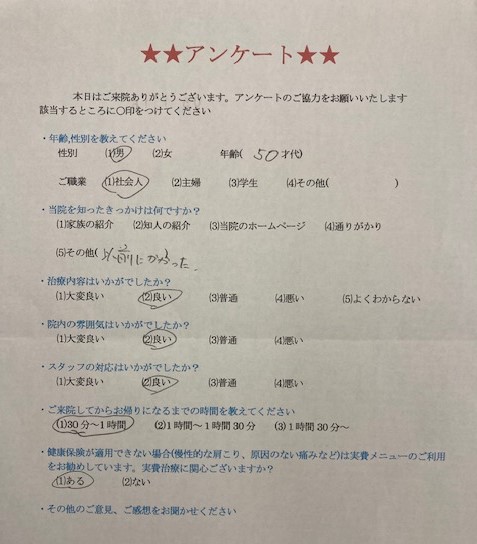 ★★アンケート★★
本日はご来院ありがとうございます。アンケートのご協力をお願いいたします
該当するところに〇印をつけてください
・年齢,性別を教えてください
性別 (1)男 (2)女 年齢( 50才代)
ご職業 (1)社会人 (2)主婦 (3)学生 (4)その他( )
・当院を知ったきっかけは何ですか?
(1)家族の紹介 (2)知人の紹介 (3)当院のホームページ (4)通りがかり
(5)その他(以前にかかった
・治療内容はいかがでしたか?
(1)大変良い (2)良い (3)普通 (4)悪い (5)よくわからない
・院内の雰囲気はいかがでしたか?
(1)大変良い (2)良い (3)普通 (4)悪い
・スタッフの対応はいかがでしたか?
(1)大変良い (2)良い (3)普通 (4)悪い
・ご来院してからお帰りになるまでの時間を教えてください
(1)30分~1時間 (2)1時間~1時間30分 (3)1時間30分~
・健康保険が適用できない場合(慢性的な肩こり、原因のない痛みなど)は実費メニューのご利用
をお勧めしています。実費治療に関心ございますか?
(1)ある (2)ない
・その他のご意見、ご感想をお聞かせください